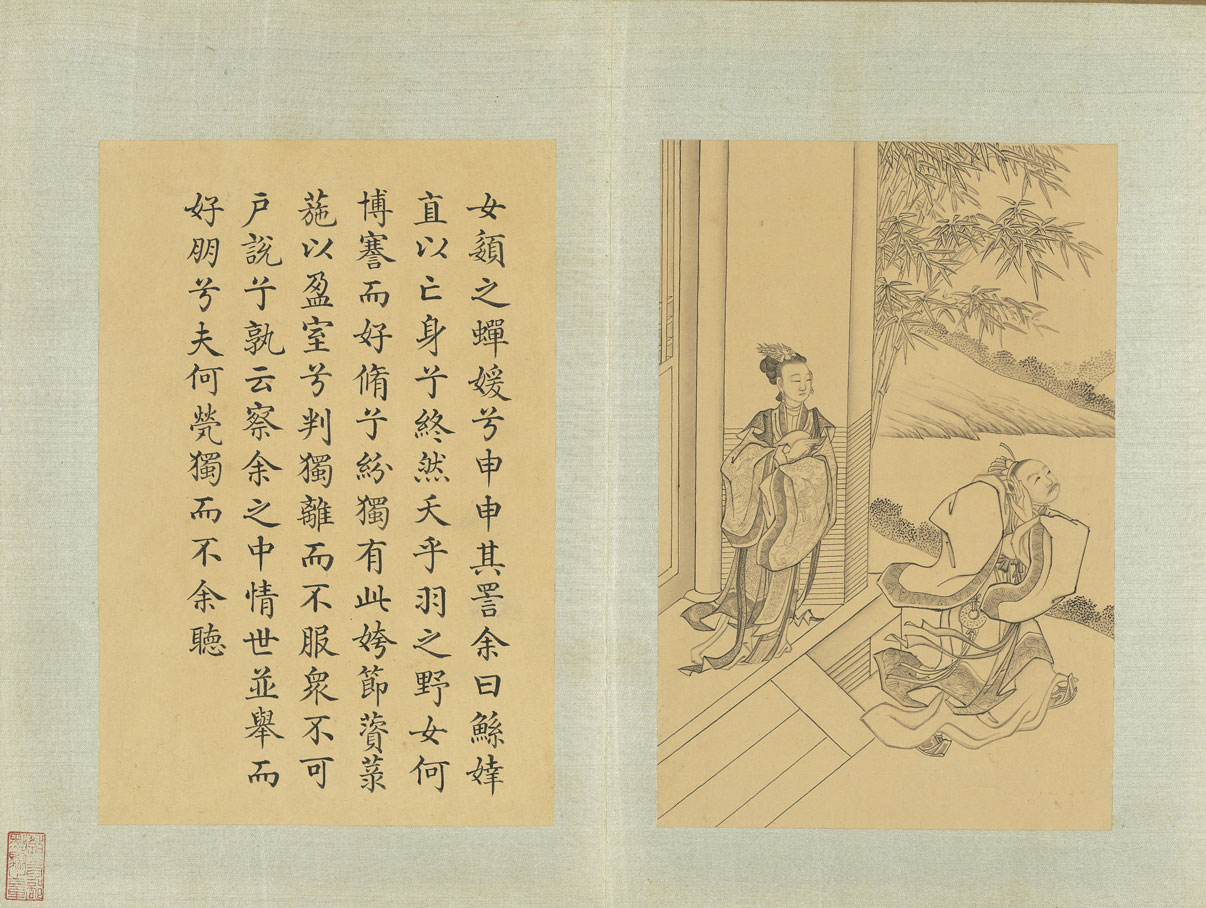 女嬃之蟬媛兮申申其詈余曰鯀婞
直以亡身兮終然夭乎羽之野女何
博謇而好脩兮紛獨有此姱節薋菉
葹以盈室兮判獨離而不服衆不可
户說兮孰云察余之中情世並舉而
好朋兮夫何煢獨而不余聽